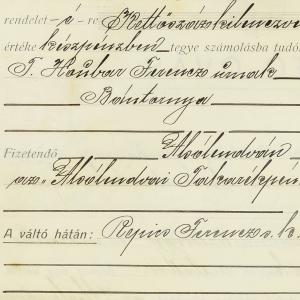 rendelet - é - re Kettőszázkilenczve
értéke készpénzben tegye számolásba tudó
T. Haubar Ferencz úrnak
Bántornya
Fizetendő Alsólendván
az „Alsólendvai Takarékpén
A váltó hátán: Repics Ferencz s. k.